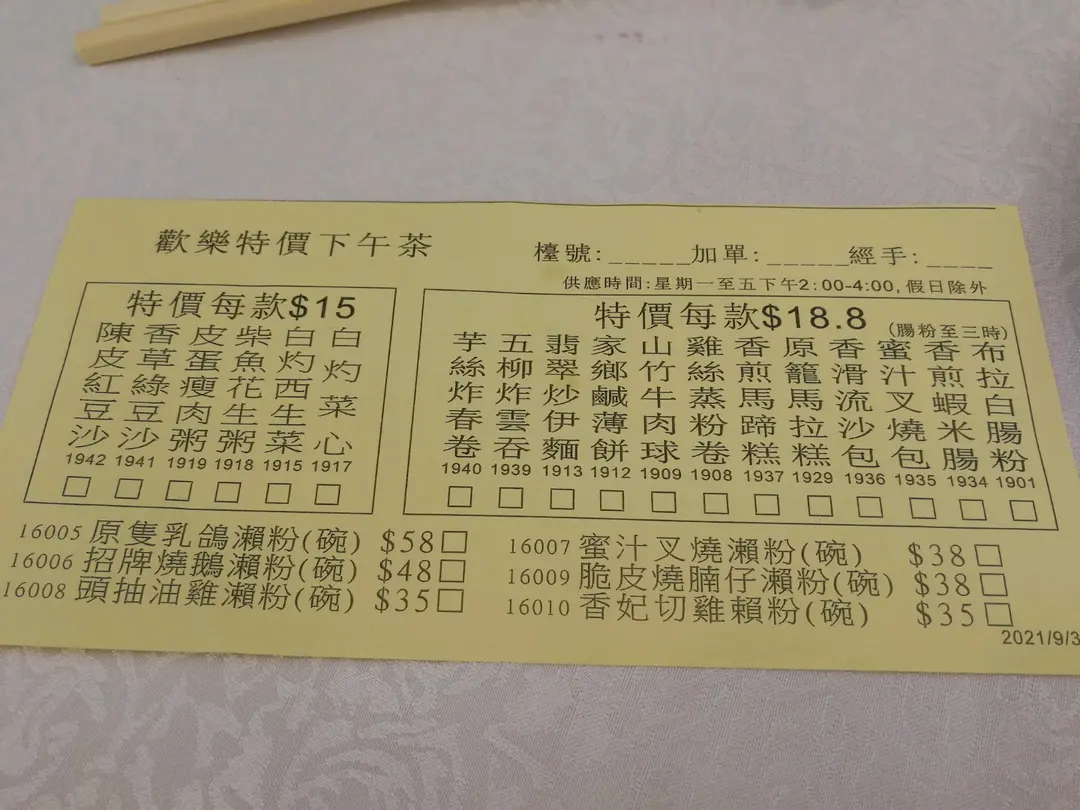 歡樂特價下午茶
檯號:_____加單:_____經手:____
供應時間:星期一至五下午2:00-4:00,假日除外
特價每款$15
陳皮紅豆沙 1942 □
香草綠豆沙 1941 □
皮蛋瘦肉粥 1919 □
柴魚花生粥 1918 □
白灼西生菜 1915 □
白灼菜心 1917 □
特價每款$18.8
(腸粉至三時)
芋絲炸春卷 1940 □
五柳炸雲吞 1939 □
翡翠炒伊麵 1913 □
家鄉鹹薄餅 1912 □
山竹牛肉球 1909 □
雞絲蒸粉卷 1908 □
香煎馬蹄糕 1937 □
原籠馬拉糕 1929 □
香滑流沙包 1936 □
蜜汁叉燒包 1935 □
香煎蝦米腸 1934 □
布拉白腸粉 1901 □
16005 原隻乳鴿瀨粉(碗) $58□
16006 招牌燒鵝瀨粉(碗) $48□
16008 頭抽油雞瀨粉(碗) $35□
16007 蜜汁叉燒瀨粉(碗) $38□
16009 脆皮燒腩仔瀨粉(碗) $38□
16010 香妃切雞賴粉(碗) $35□
2021/9/3